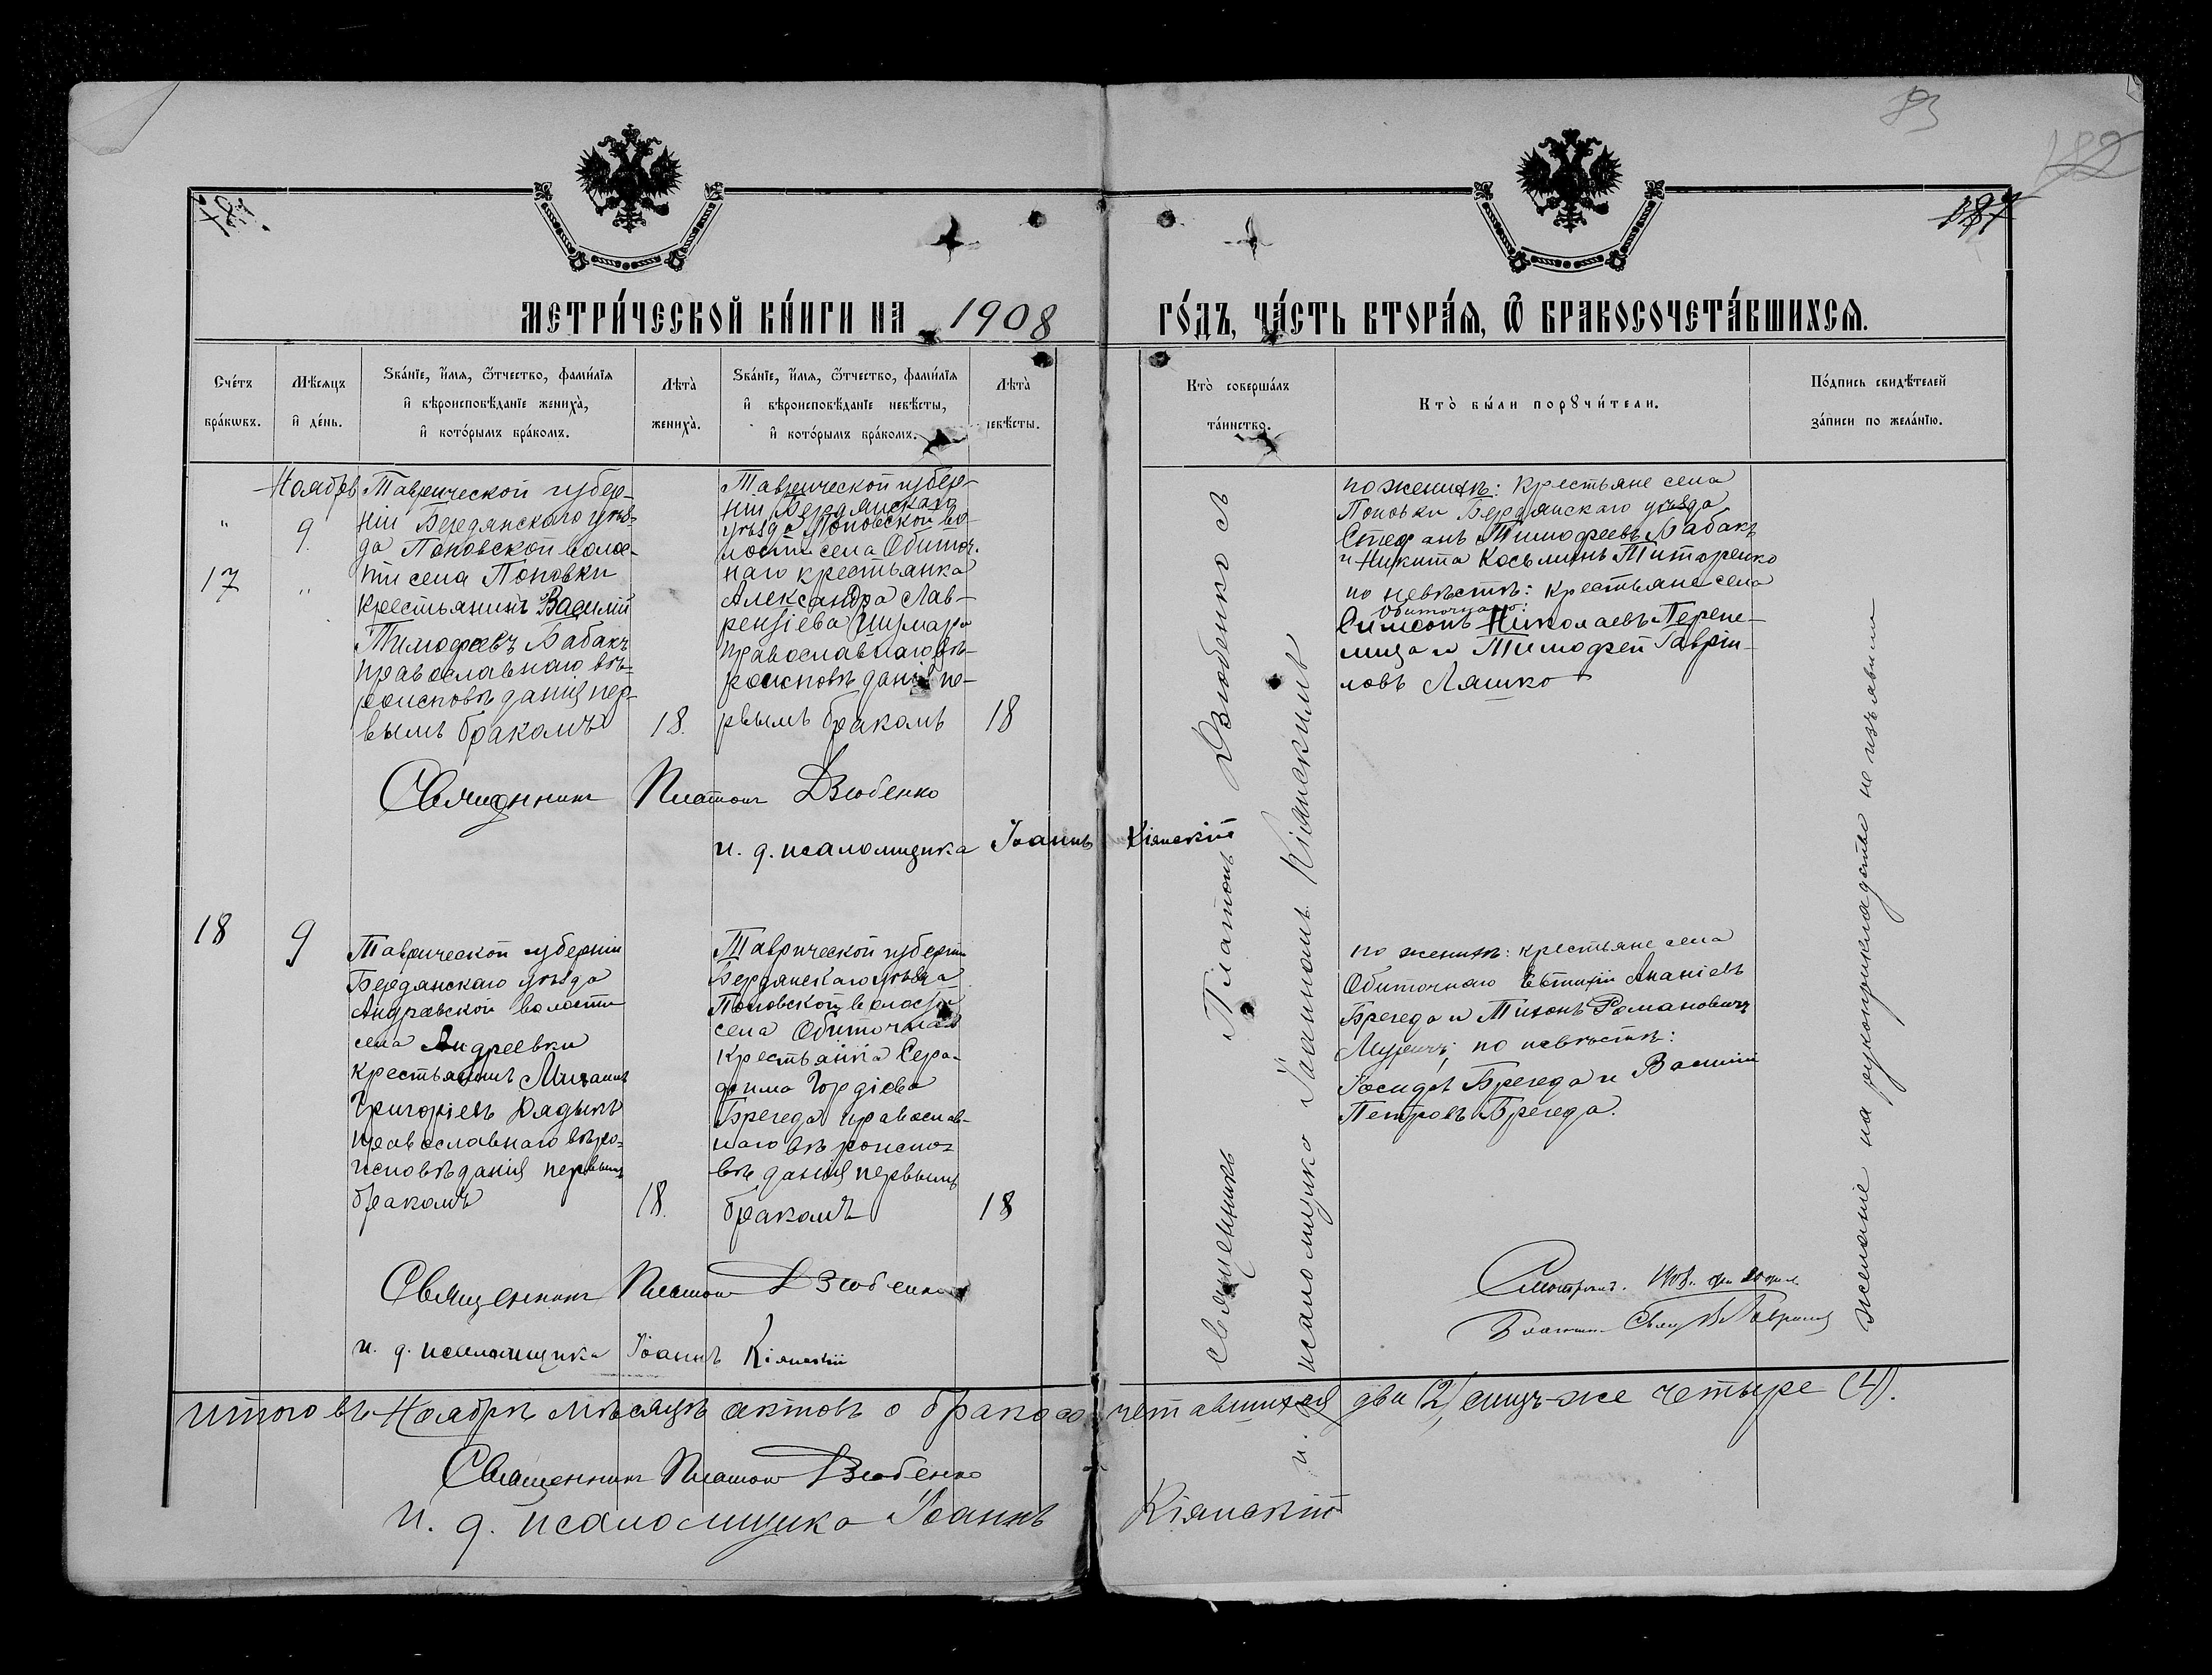 83
182
187
МЕТРИ́ЧЕСКОЙ КНИ́ГИ НА 1908 ГО́ДЪ, ЧА́СТЬ ВТОРА́Я, Ѿ БРАКОСОЧЕТА́ВШИХСЯ.
Сче́тъ бра́кѡвъ.
Мѣ́сяцъ и҆ де́нь.
Ѕва́нїе, и҆́мя, ѻ҆́тчество, фами́лїя
и҆ вѣроисповѣ́данїе жениха̀,
и҆ кото́рымъ бра́комъ.
Лѣта̀ жениха̀.
Ѕва́нїе, и҆́мя, ѻ҆́тчество, фами́лїя
и҆ вѣроисповѣ́данїе невѣ́сты,
и҆ кото́рымъ бра́комъ.
Лѣта̀ невѣ́сты.
Кто̀ соверша́лъ
та́инство.
Кто̀ бы́ли порꙋчи́тели.
По́дпись свидѣ́телей
за́писи по жела́нїю.
17
Ноябрь
9.
Таврической губер-
ніи Бердянскаго уѣз-
да Поповской волос-
ти села Поповки
крестьянинъ Василій
Тимофеевъ Бабакъ
православнаго вѣ-
роисповѣданія пер-
вымъ бракомъ
18.
Таврической губер-
ніи Бердянскаго
уѣзда Поповской во-
лости села Обиточ-
наго крестьянка
Александра Лав-
рентіева
православнаго вѣ-
роисповѣданія пе-
рвымъ бракомъ
18
по женихѣ: крестьяне села
Поповки Бердянскаго уѣзда
Стефанъ Тимофеевъ Бабакъ
и Никита Косьминъ Титаренко
по невѣстѣ: крестьяне села
Обиточнаго:
Симеонъ Николаевъ Перепе-
лица и Тимофей Гаврiи-
ловъ Ляшко
Священникъ Платонъ Дзюбенко
и. д. псаломщика Іоаннъ Кіянскій
18
9
Таврической губерніи
Бердянскаго уѣзда
Андреевской волости
села Андреевки
крестьянинъ Михаилъ
Григоріевъ
православнаго вѣро-
исповѣданія первымъ
бракомъ
18.
Таврической губерніи
Бердянскаго уѣзда
Поповской волости
села Обиточнаго
крестьянка Сера-
фима Гордіева
Брегеда православ-
наго вѣроиспо-
вѣданія первымъ
бракомъ
18
по женихѣ: крестьяне села
Обиточнаго Евтихій Ананіевъ
Брегеда и Тихонъ Романовичъ
по невѣстѣ:
Іосифъ Брегеда и Василій
Петровъ Брегеда.
Священникъ Платонъ Дзюбенко
и. д. псаломщика Іоаннъ Кіянскій
Священникъ Платонъ Дзюбенко съ
и. д. псаломщика Іоанномъ Кіянскимъ
желаніе на рукоприкладство не изъявили
Смотрѣлъ. 1908
итого въ Ноябрѣ мѣсяцѣ актовъ о бракосочетавшихся два (2), лицъ-же четыре (4).
Священникъ Платонъ Дзюбенко
и. д. псаломщика Іоаннъ Кіянскій